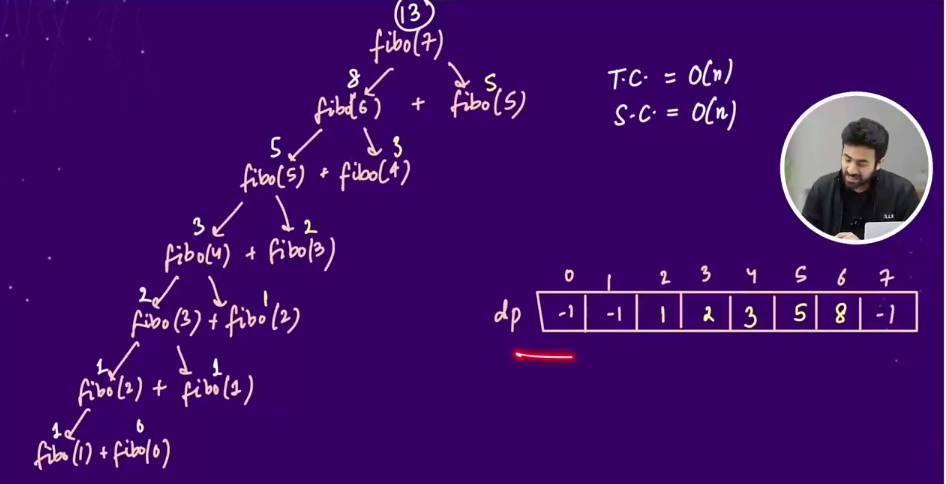 13
fibo(7)
8 5
fibo(6) + fibo(5)
5 3
fibo(5) + fibo(4)
3 2
fibo(4) + fibo(3)
2 1
fibo(3) + fibo(2)
1 1
fibo(2) + fibo(1)
1 0
fibo(1) + fibo(0)
T.C. = O(n)
S.C. = O(n)
0 1 2 3 4 5 6 7
dp -1 -1 1 2 3 5 8 -1